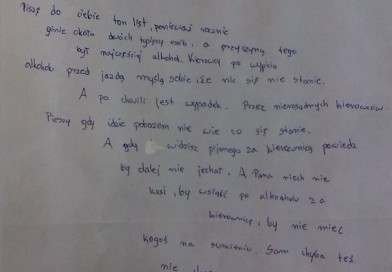 Piszę do ciebie ten list, ponieważ rocznie
ginie około dwóch tysięcy osób, a przyczyną tego
był najczęściej alkohol. Kierowcy po wypiciu
alkoholu przed jazdą myślą sobie, że nic się nie stanie.
A po chwili jest wypadek. Przez nierozsądnych kierowców.
Pieszy gdy idzie poboczem nie wie co się stanie.
A gdy widzisz pijanego za kierownicą powiedz
by dalej nie jechał. A Pana niech nie
kusi, by wsiąść po alkoholu za
kierownicę, by nie mieć
kogoś na sumieniu. Sam chyba też
nie